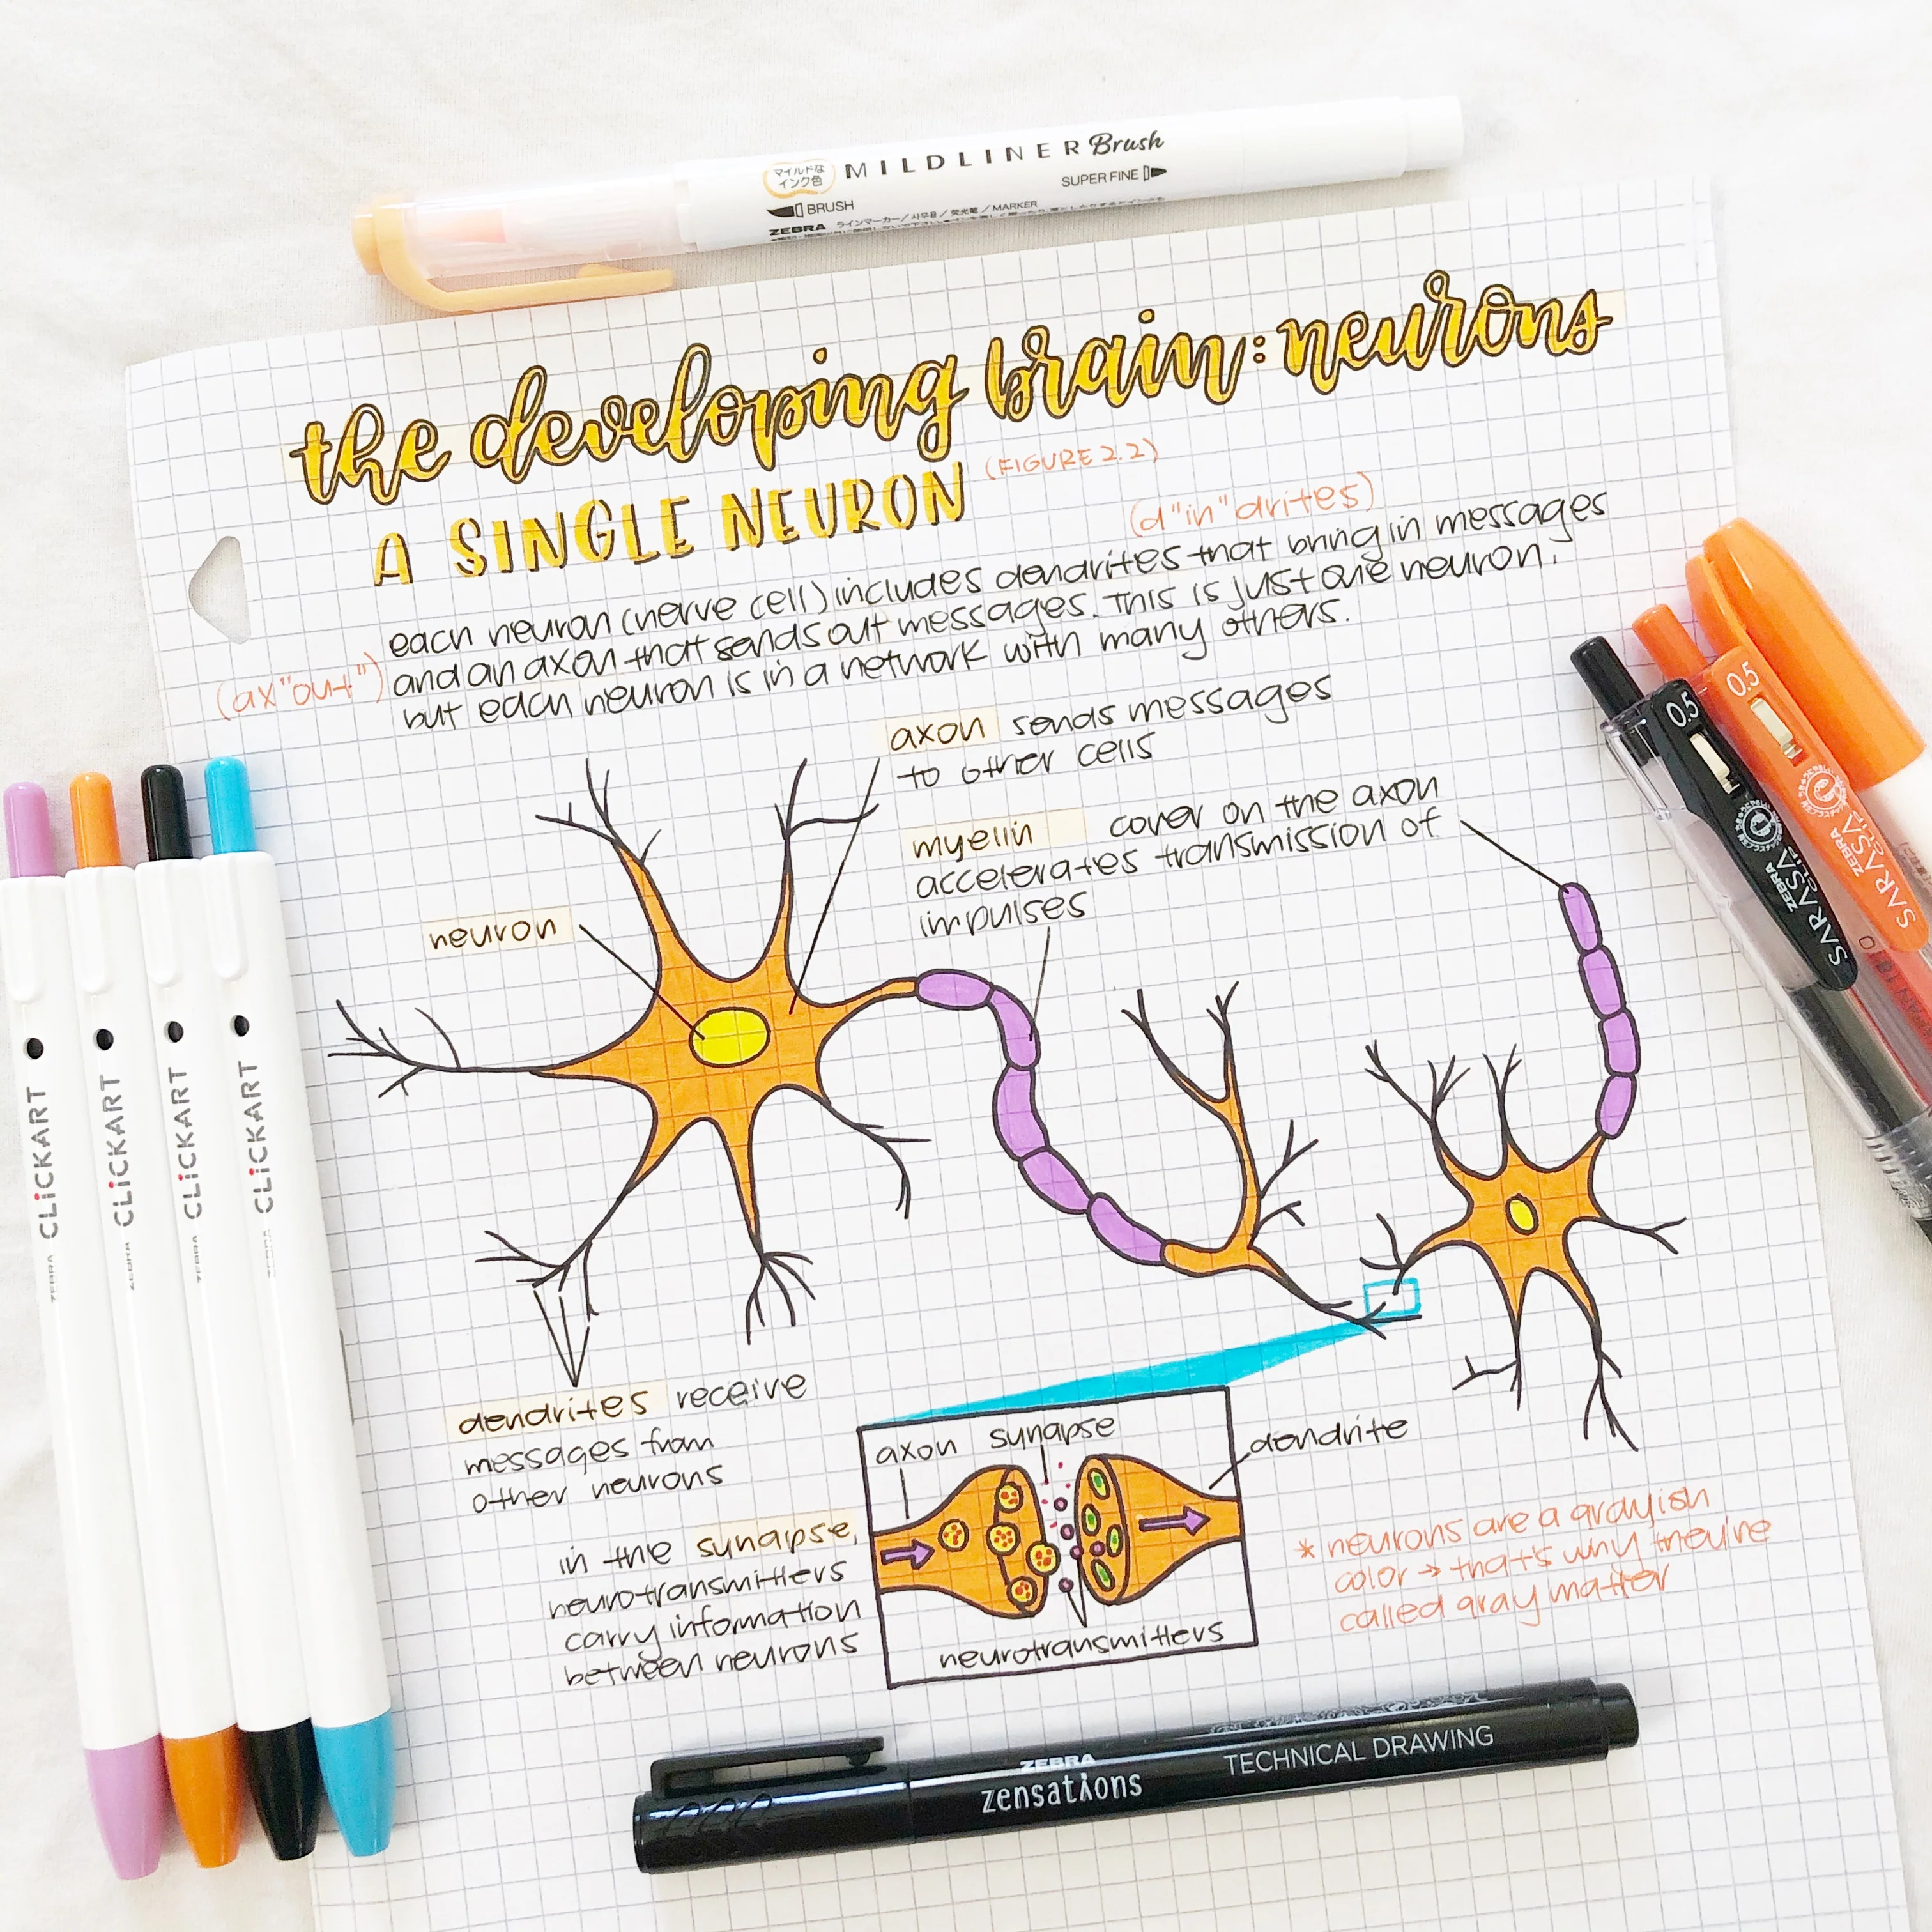 マイルドな
インク色
MILDLINER Brush
BRUSH
SUPER FINE
ZEBRA ラインマーカー/사무용/荧光笔/MARKER
the developing brain: neurons
A SINGLE NEURON
(FIGURE 2.2)
(d"in"drites)
each neuron (nerve cell) includes dendrites that bring in messages
(ax"out")
and an axon that sends out messages. This is just one neuron,
but each neuron is in a network with many others.
axon sends messages
to other cells
myelin cover on the axon
accelerates transmission of
impulses
neuron
dendrites receive
messages from
other neurons
in the synapse,
neurotransmitters
carry information
between neurons
axon
synapse
dendrite
neurotransmitters
* neurons are a grayish
color → that's why they're
called gray matter
ZEBRA CLiCKART
ZEBRA CLiCKART
ZEBRA CLiCKART
ZEBRA CLiCKART
0.5
ZEBRA
SARASA
CLIP
0.5
ZEBRA
SARASA
CLIP
ZEBRA
zensations
TECHNICAL DRAWING